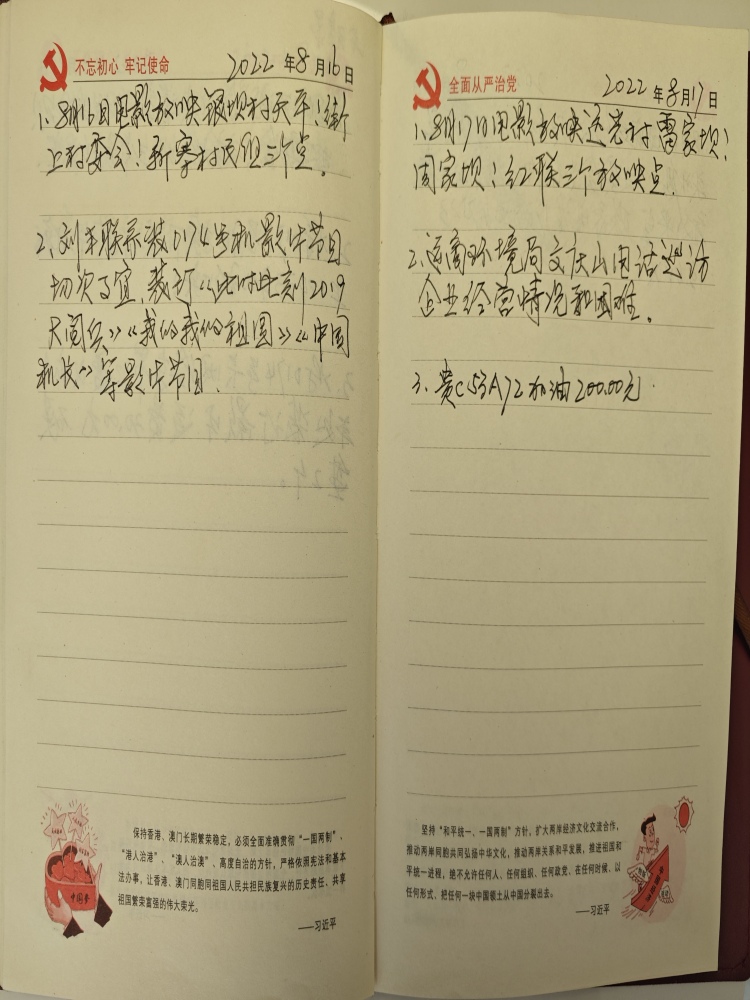 不忘初心 牢记使命
2022年8月16日
1、8月16日电影放映银坝村天平！街
上村委会！新寨村民组三个点。
2、刘丰联系装0174号机影片节目
场次事宜,装订《此时此刻2019
大阅兵》《我的我的祖国》《中国
机长》等影片节目.
保持香港、澳门长期繁荣稳定，必须全面准确贯彻“一国两制”、
“港人治港”、“澳人治澳”、高度自治的方针，严格依照宪法和基本
法办事，让香港、澳门同胞同祖国人民共担民族复兴的历史责任、共享
祖国繁荣富强的伟大荣光。
——习近平
中国梦
全面从严治党
2022年8月17日
1、8月17日电影放映村雷家坝！
周家坝！红联三个放映点.
2、商环境局文庆山电话巡访
企业经营情况和困难。
3、贵C53A72加油200.00元.
坚持“和平统一、一国两制”方针，扩大两岸经济文化交流合作，
推动两岸同胞共同弘扬中华文化，推动两岸关系和平发展，推进祖国和
平统一进程，绝不允许任何人、任何组织、任何政党、在任何时候、以
任何形式、把任何一块中国领土从中国分裂出去。
——习近平